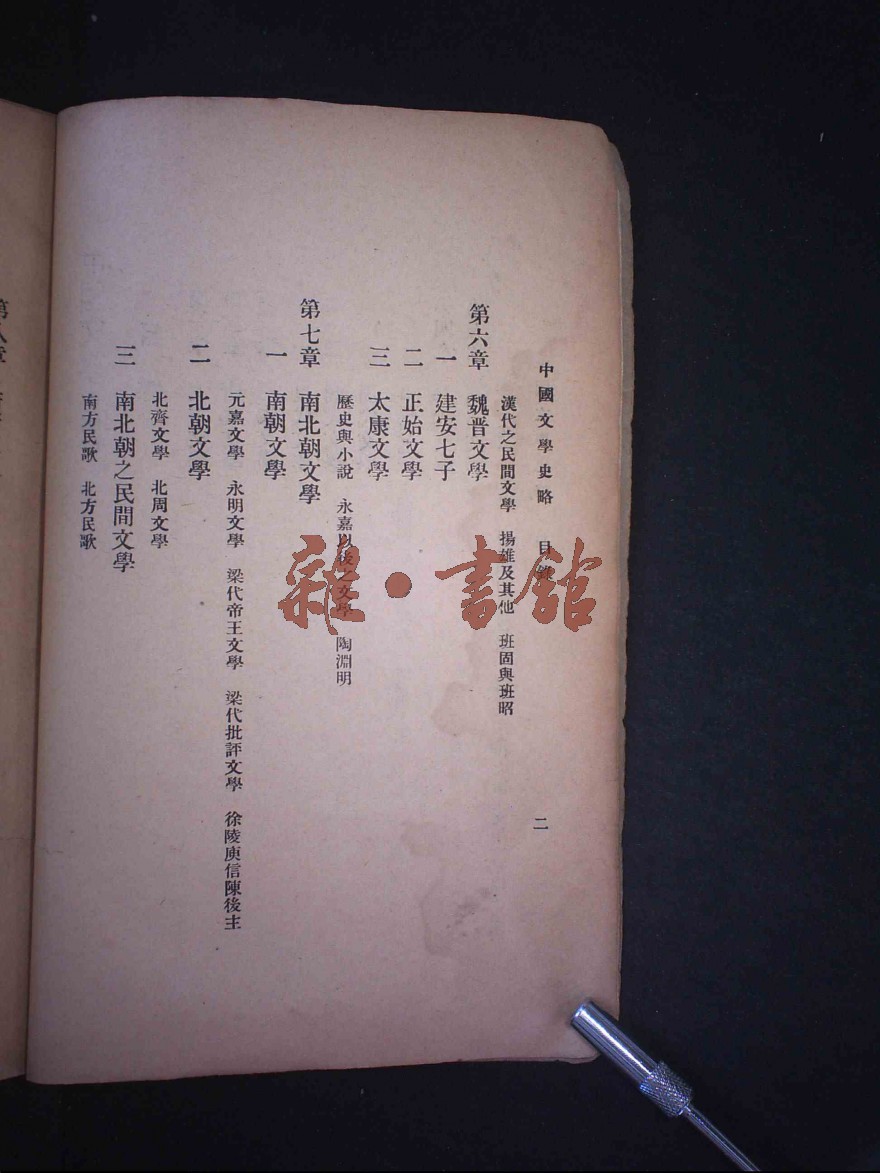 中國文學史略 目錄 二
漢代之民間文學 揚雄及其他 班固與班昭
第六章 魏晋文學
一 建安七子
二 正始文學
三 太康文學
歷史與小說 永嘉以後之文學 陶淵明
第七章 南北朝文學
一 南朝文學
元嘉文學 永明文學 梁代帝王文學 梁代批評文學 徐陵庾信陳後主
二 北朝文學
北齊文學 北周文學
三 南北朝之民間文學
南方民歌 北方民歌
第八章
雜·書館